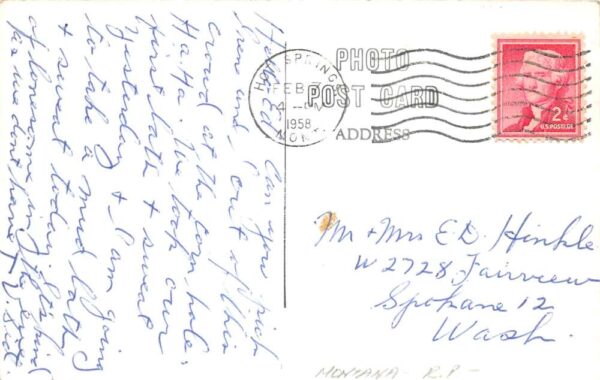 Hello Ed. Can you pick
Irene and I out of this
crowd at the Corn hole.
Ha. Ha. We took our
first bath & sweat
Yesterday & I am going
to take a mud bath
& sweat today. It's kind
of lonesome in the eve
for we don't have T.V. Set.
HOT SPRINGS
FEB 7
4-PM
1958
MONT.
PHOTO
POST CARD
ADDRESS
2¢
U.S. POSTAGE
Mr & Mrs E.D. Hinkle
W 2728 Fairview
Spokane 12
Wash.
MONTANA - R.P -